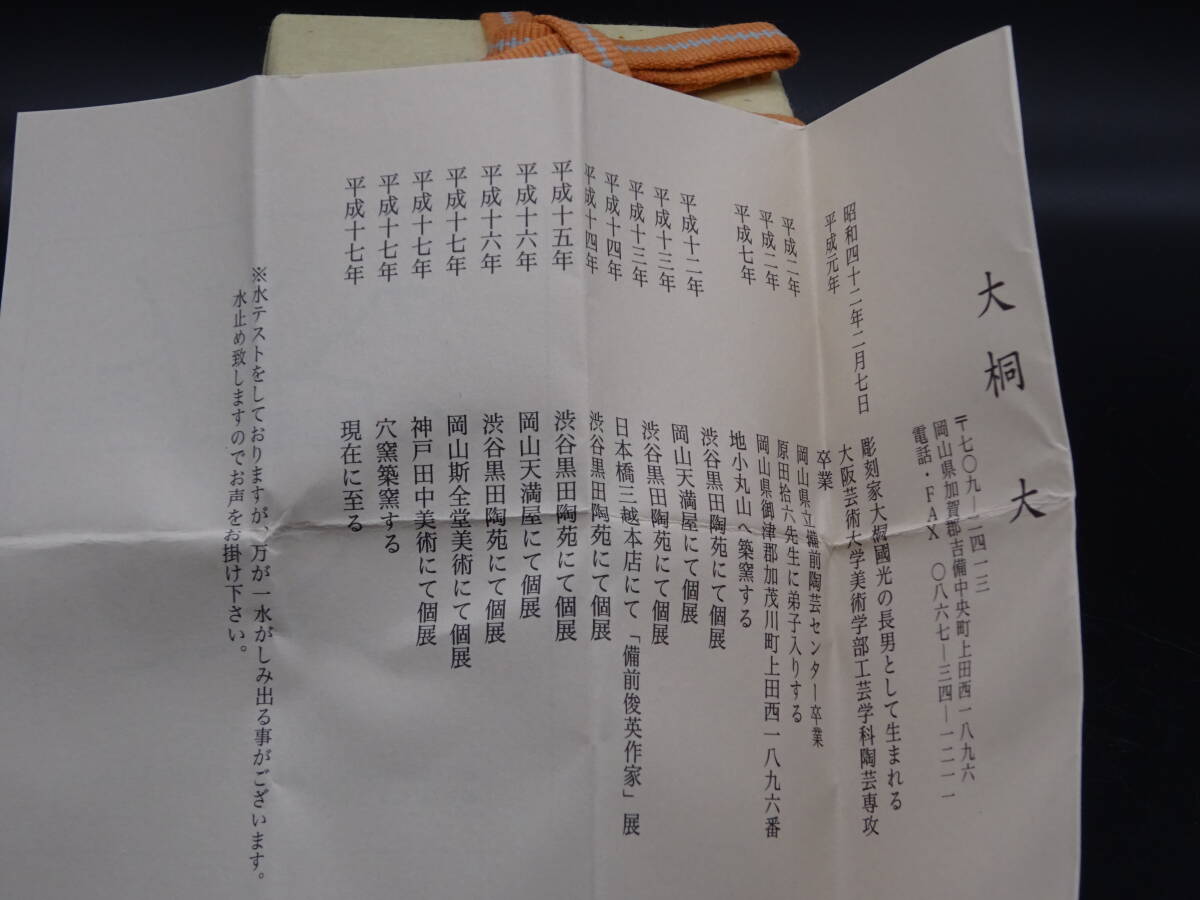 大桐 大
〒七〇九―二四一三
岡山県加賀郡吉備中央町上田西一八九六
電話・FAX 〇八六七―三四―一二一一
昭和四十二年二月七日 彫刻家大桐國光の長男として生まれる
平成元年 大阪芸術大学美術学部工芸学科陶芸専攻
卒業
平成二年 岡山県立備前陶芸センター卒業
平成二年 原田拾六先生に弟子入りする
平成七年 岡山県御津郡加茂川町上田西一八九六番
地小丸山へ築窯する
平成十二年 渋谷黒田陶苑にて個展
平成十三年 岡山天満屋にて個展
平成十三年 渋谷黒田陶苑にて個展
平成十四年 日本橋三越本店にて「備前俊英作家」展
平成十四年 渋谷黒田陶苑にて個展
平成十五年 渋谷黒田陶苑にて個展
平成十六年 岡山天満屋にて個展
平成十六年 渋谷黒田陶苑にて個展
平成十七年 岡山斯全堂美術にて個展
平成十七年 神戸田中美術にて個展
平成十七年 穴窯築窯する
平成十七年 現在に至る
※水テストをしておりますが、万が一水がしみ出る事がございます。
水止め致しますのでお声をお掛け下さい。